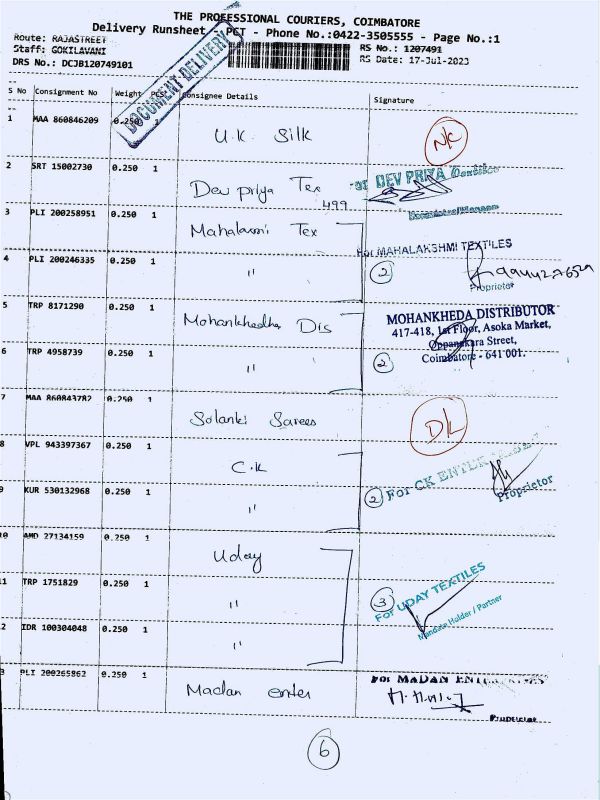 THE PROFESSIONAL COURIERS, COIMBATORE
Delivery Runsheet - PCT - Phone No.:0422-3505555 - Page No.:1
Route: RAJASTREET
RS No.: 1207491
Staff: GOKILAVANI
RS Date: 17-Jul-2023
DRS No.: DCJB120749101
DOCUMENT DELIVERY
S No Consignment No Weight PCS Consignee Details Signature
1 MAA 860846209 0.250 1 U.K. Silk NK
2 SRT 15002730 0.250 1 Dev priya Tex DEV PRIYA
499
3 PLI 200258951 0.250 1 Mahalaxmi Tex For MAHALAKSHMI TEXTILES
4 PLI 200246335 0.250 1 " 2
Proprietor
5 TRP 8171290 0.250 1 Mohankhedha Dis MOHANKHEDA DISTRIBUTOR
417-418, 1st Floor, Asoka Market,
Oppanakara Street,
6 TRP 4958739 0.250 1 " 2 Coimbatore - 641 001.
7 MAA 860843782 0.250 1 Solanki Sarees DK
8 VPL 943397367 0.250 1 C.K For CK
9 KUR 530132968 0.250 1 " 2 Proprietor
10 AMD 27134159 0.250 1 Uday
11 TRP 1751829 0.250 1 " 3 For UDAY TEXTILES
Holder / Partner
2 IDR 100304048 0.250 1 "
3 PLI 200265862 0.250 1 Madan enter For MADAN
Proprietor
6